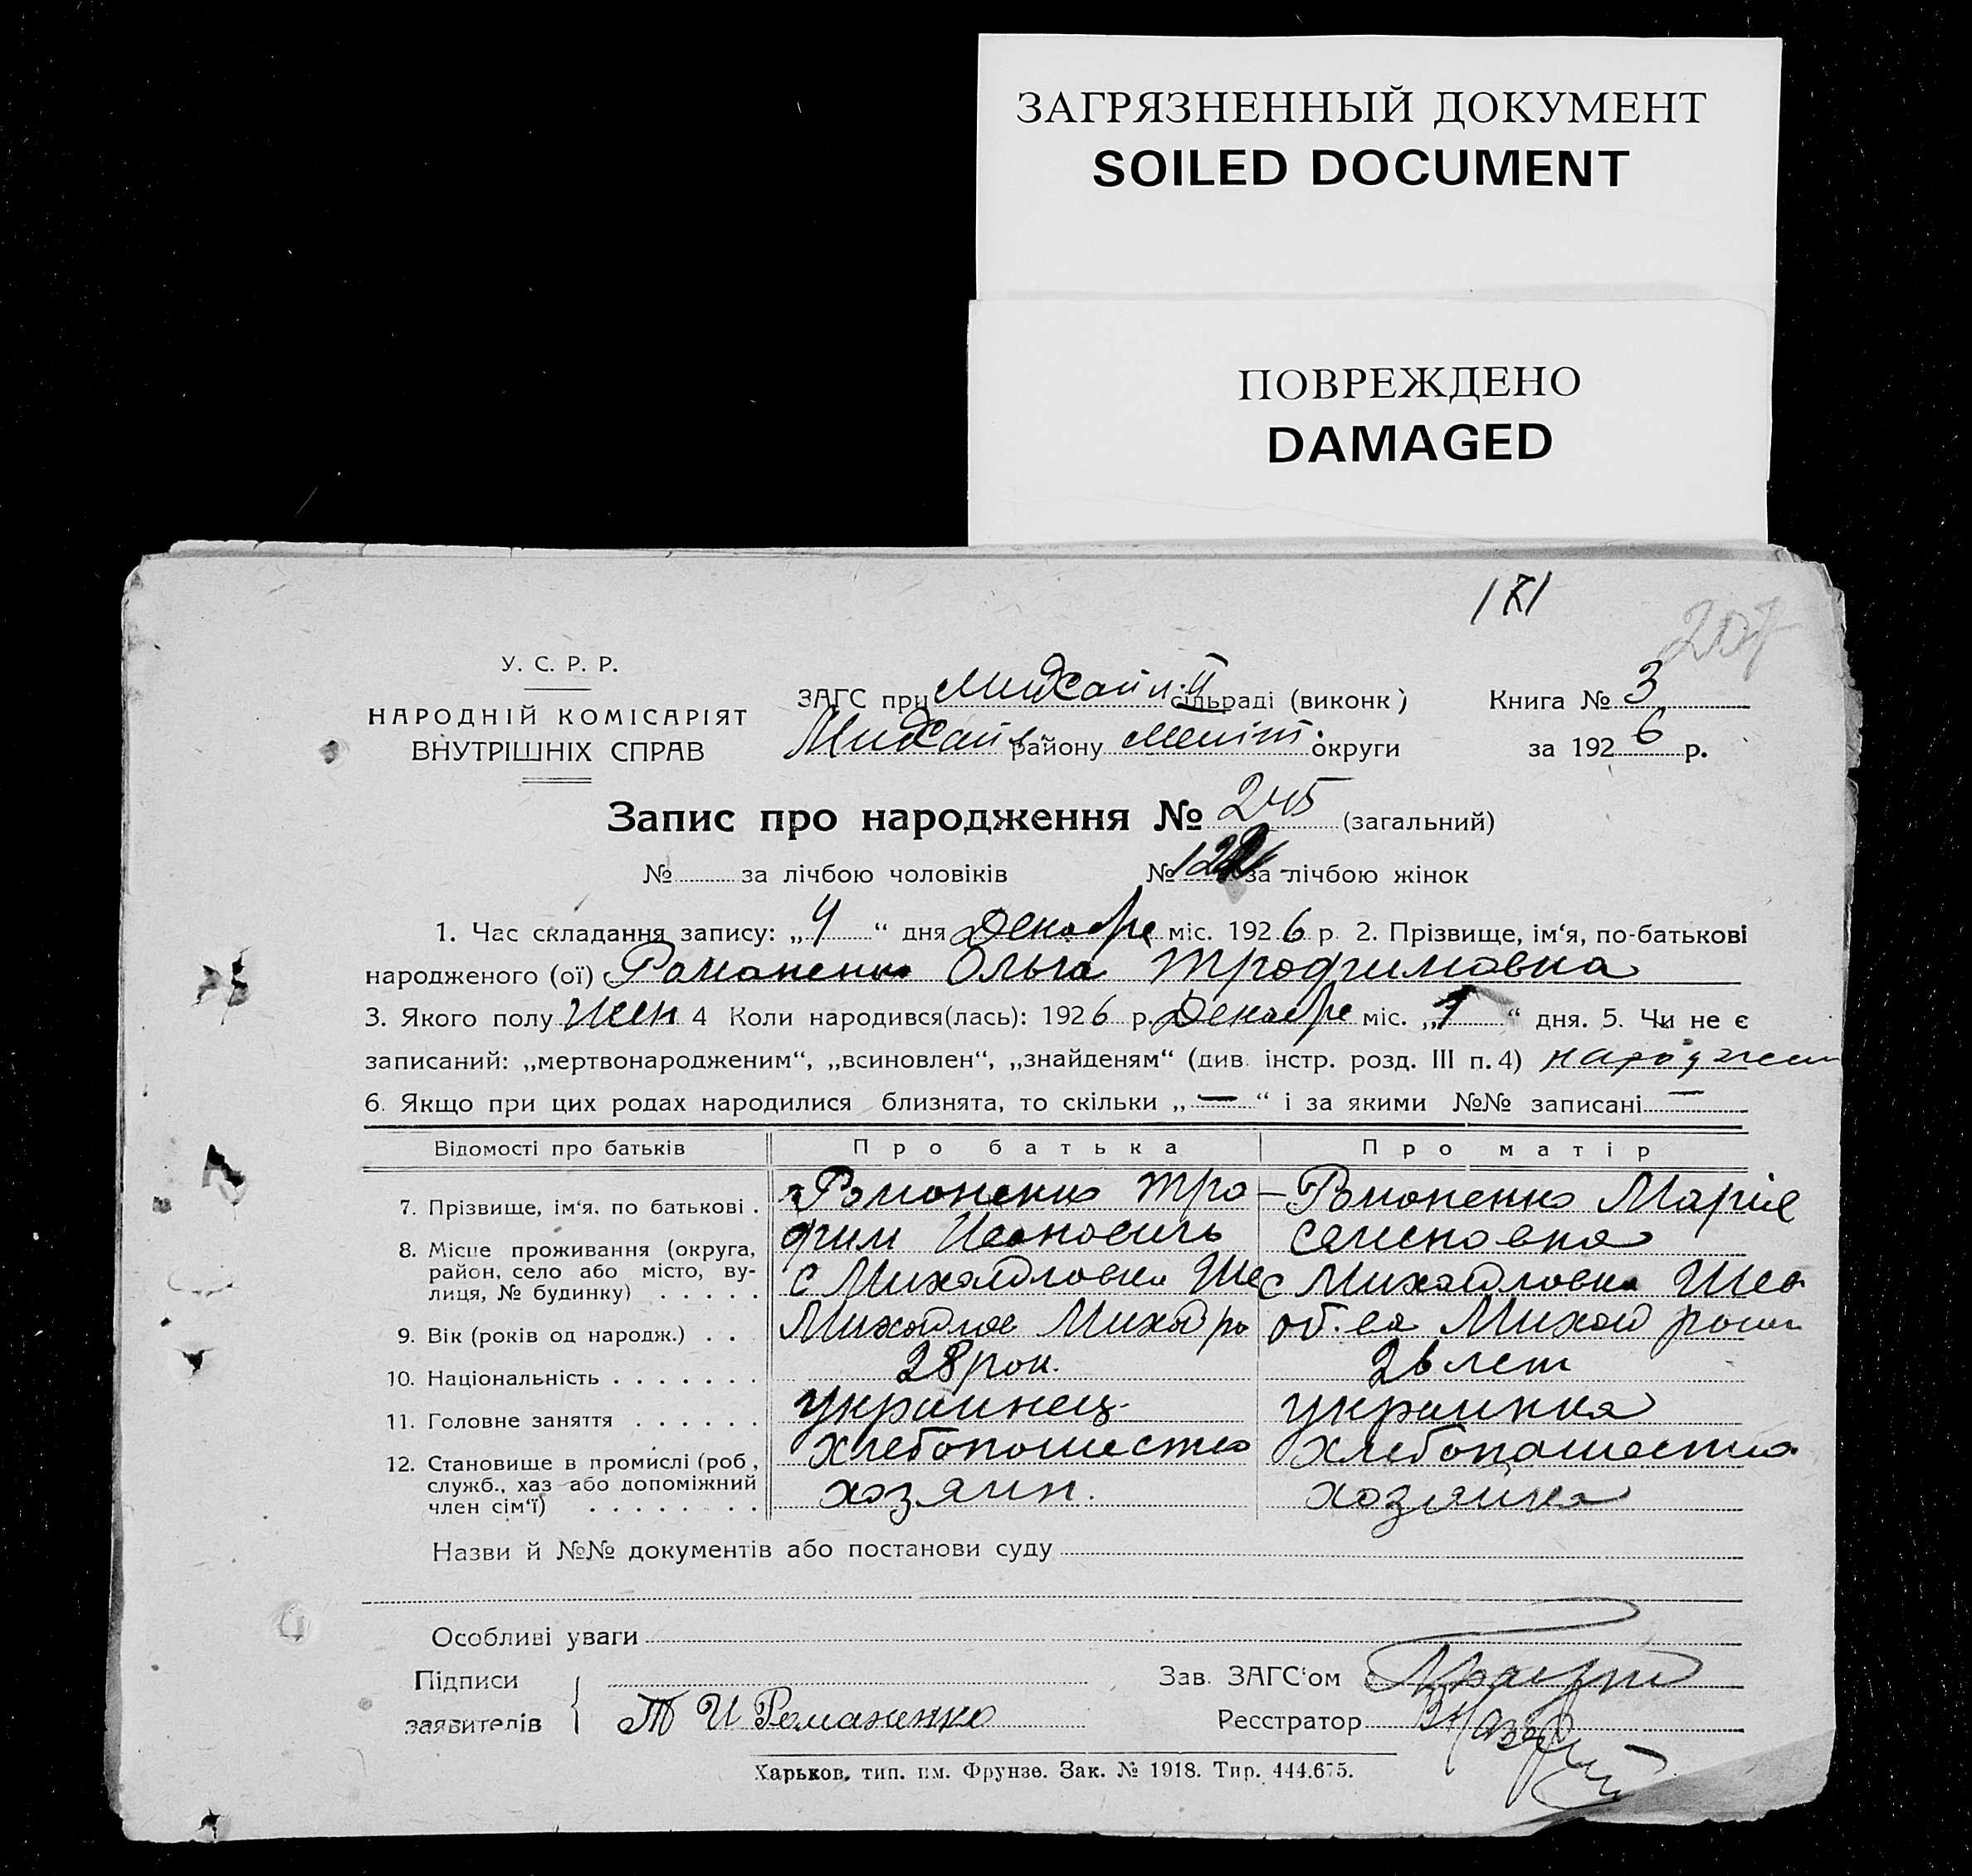 ЗАГРЯЗНЕННЫЙ ДОКУМЕНТ
SOILED DOCUMENT
ПОВРЕЖДЕНО
DAMAGED
171
207
У. С. Р. Р.
НАРОДНІЙ КОМІСАРІЯТ
ВНУТРІШНІХ СПРАВ
ЗАГС при Михайл. ІІ сільраді (виконк)
Михайл району Меліт. округи
Книга № 3
за 1926 р.
Запис про народження № 245 (загальний)
№ за лічбою чоловіків № за лічбою жінок
1. Час складання запису: „4“ дня Декабре міс. 1926 р 2. Прізвище, ім‘я, по-батькові
народженого (ої) Романенко Ольга Трофимовна
3. Якого полу жен 4 Коли народився(лась): 1926 р. Декабре міс. „1“ дня. 5. Чи не є
записаний: „мертвонародженим“, „всиновлен“, „знайденям“ (див. інстр. розд. III п. 4)
6. Якщо при цих родах народилися близнята, то скільки „—“ і за якими №№ записані —
Відомості про батьків Про батька Про матір
7. Прізвище, ім‘я. по батькові . Романенко Тро- Романенко Марія
фим Иванович Семеновна
8. Місце проживання (округа,
район, село або місто, ву-
лиця, № будинку) . . . . . с Михайловка с Михайловка
9. Вік (років од народж.) . . 28 рок. 26 лет
10. Національність . . . . . . . украинец украинка
11. Головне заняття . . . . . . хлебопашество хлебопашество
12. Становище в промислі (роб,
служб., хаз або допоміжний
член сім‘ї) . . . . . . . . хозяин. хозяйка
Назви й №№ документів або постанови суду
Особливі уваги
Підписи
заявителів Т И Романенко
Зав. ЗАГС‘ом
Реєстратор
Харьков, тип. им. Фрунзе. Зак. № 1918. Тир. 444.675.